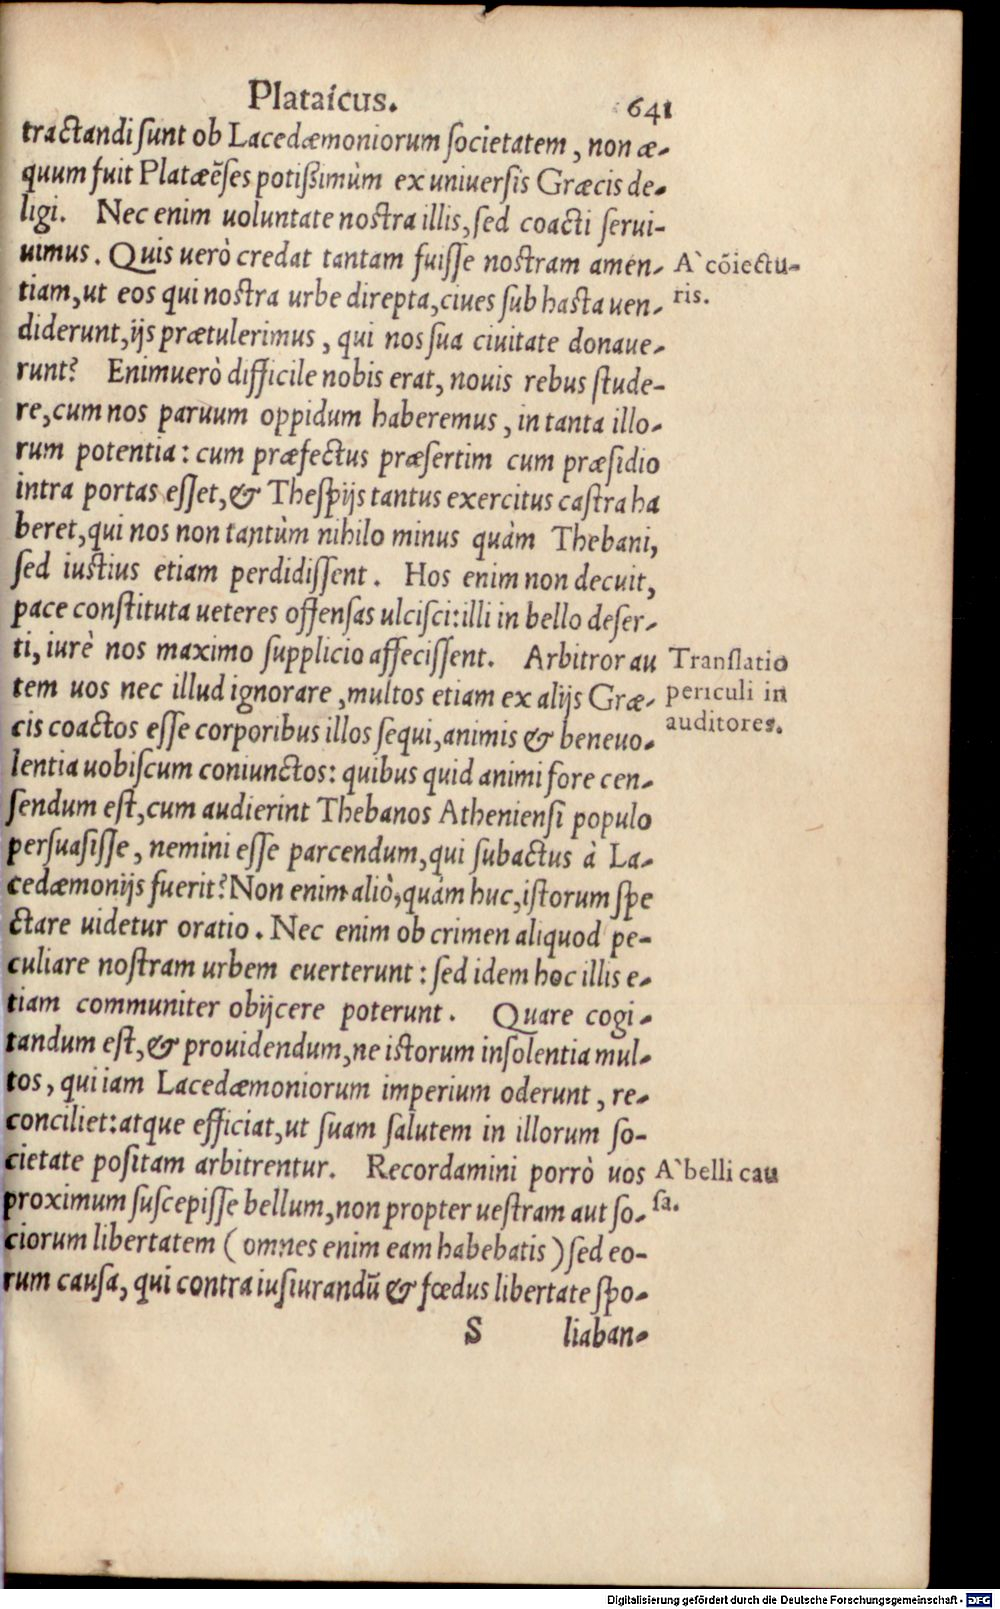 Plataícus. 641
tractandi sunt ob Lacedæmoniorum societatem, non æ-
quum fuit Platæẽses potißimùm ex uniuersis Græcis de-
ligi. Nec enim uoluntate nostra illis, sed coacti serui-
uimus. Quis uerò credat tantam fuisse nostram amen-
A` cõiectu-
tiam, ut eos qui nostra urbe direpta, ciues sub hasta uen-
ris.
diderunt, ijs prætulerimus, qui nos sua ciuitate donaue-
runt? Enimuerò difficile nobis erat, nouis rebus stude-
re, cum nos paruum oppidum haberemus, in tanta illo-
rum potentia: cum præfectus præsertim cum præsidio
intra portas esset, & Thespijs tantus exercitus castra ha
beret, qui nos non tantùm nihilo minus quàm Thebani,
sed iustius etiam perdidissent. Hos enim non decuit,
pace constituta ueteres offensas ulcisci: illi in bello deser-
ti, iurè nos maximo supplicio affecissent. Arbitror au
Translatio
tem uos nec illud ignorare, multos etiam ex alijs Græ-
periculi in
cis coactos esse corporibus illos sequi, animis & beneuo-
auditores.
lentia uobiscum coniunctos: quibus quid animi fore cen-
sendum est, cum audierint Thebanos Atheniensi populo
persuasisse, nemini esse parcendum, qui subactus à La-
cedæmonijs fuerit? Non enim aliò, quàm huc, istorum spe
ctare uidetur oratio. Nec enim ob crimen aliquod pe-
culiare nostram urbem euerterunt: sed idem hoc illis e-
tiam communiter obijcere poterunt. Quare cogi-
tandum est, & prouidendum, ne istorum insolentia mul-
tos, qui iam Lacedæmoniorum imperium oderunt, re-
conciliet: atque efficiat, ut suam salutem in illorum so-
cietate positam arbitrentur. Recordamini porrò uos
A` belli cau
proximum suscepisse bellum, non propter uestram aut so-
sa.
ciorum libertatem (omnes enim eam habebatis) sed eo-
rum causa, qui contra iusiurandũ & fœdus libertate spo-
S liaban-
Digitalisierung gefördert durch die Deutsche Forschungsgemeinschaft - DFG